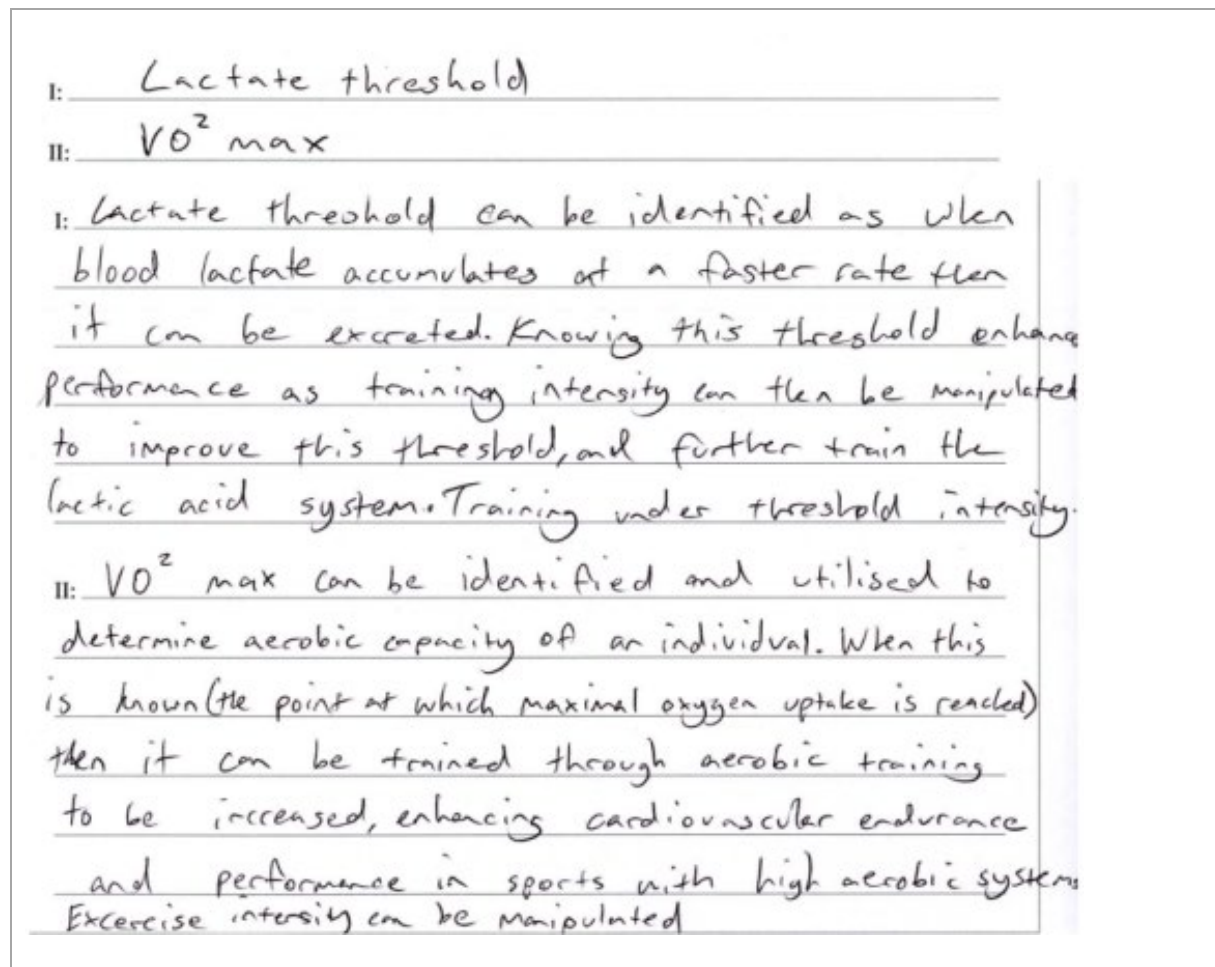 I: Lactate threshold
II: VO² max
I: Lactate threshold can be identified as when
blood lactate accumulates at a faster rate then
it can be excreted. Knowing this threshold enhance
performance as training intensity can then be manipulated
to improve this threshold, and further train the
lactic acid system. Training under threshold intensity.
II: VO² max can be identified and utilised to
determine aerobic capacity of an individual. When this
is known (the point at which maximal oxygen uptake is reached)
then it can be trained through aerobic training
to be increased, enhancing cardiovascular endurance
and performance in sports with high aerobic systems
Excercise intensity can be manipulated